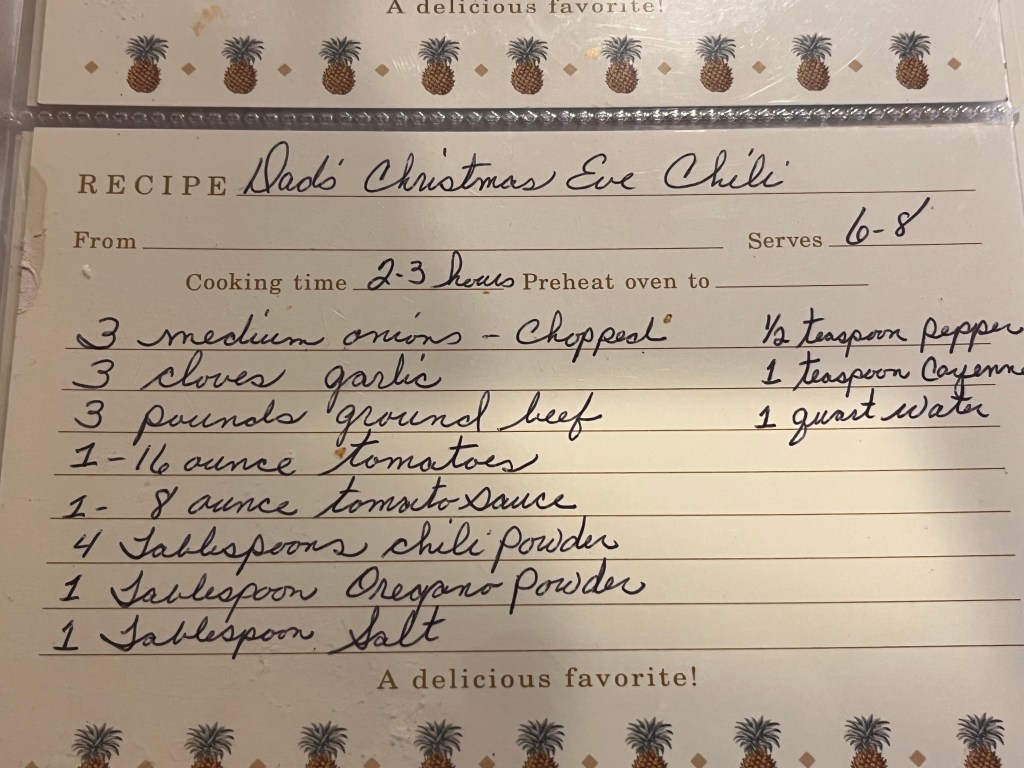 A delicious favorite!
RECIPE Dad's Christmas Eve Chili
From Serves 6-8
Cooking time 2-3 hours Preheat oven to
3 medium onions - Chopped
3 cloves garlic
3 pounds ground beef
1-16 ounce tomatoes
1- 8 ounce tomato sauce
4 Tablespoons chili powder
1 Tablespoon Oregano powder
1 Tablespoon Salt
1/2 teaspoon pepper
1 teaspoon Cayenne
1 quart water
A delicious favorite!